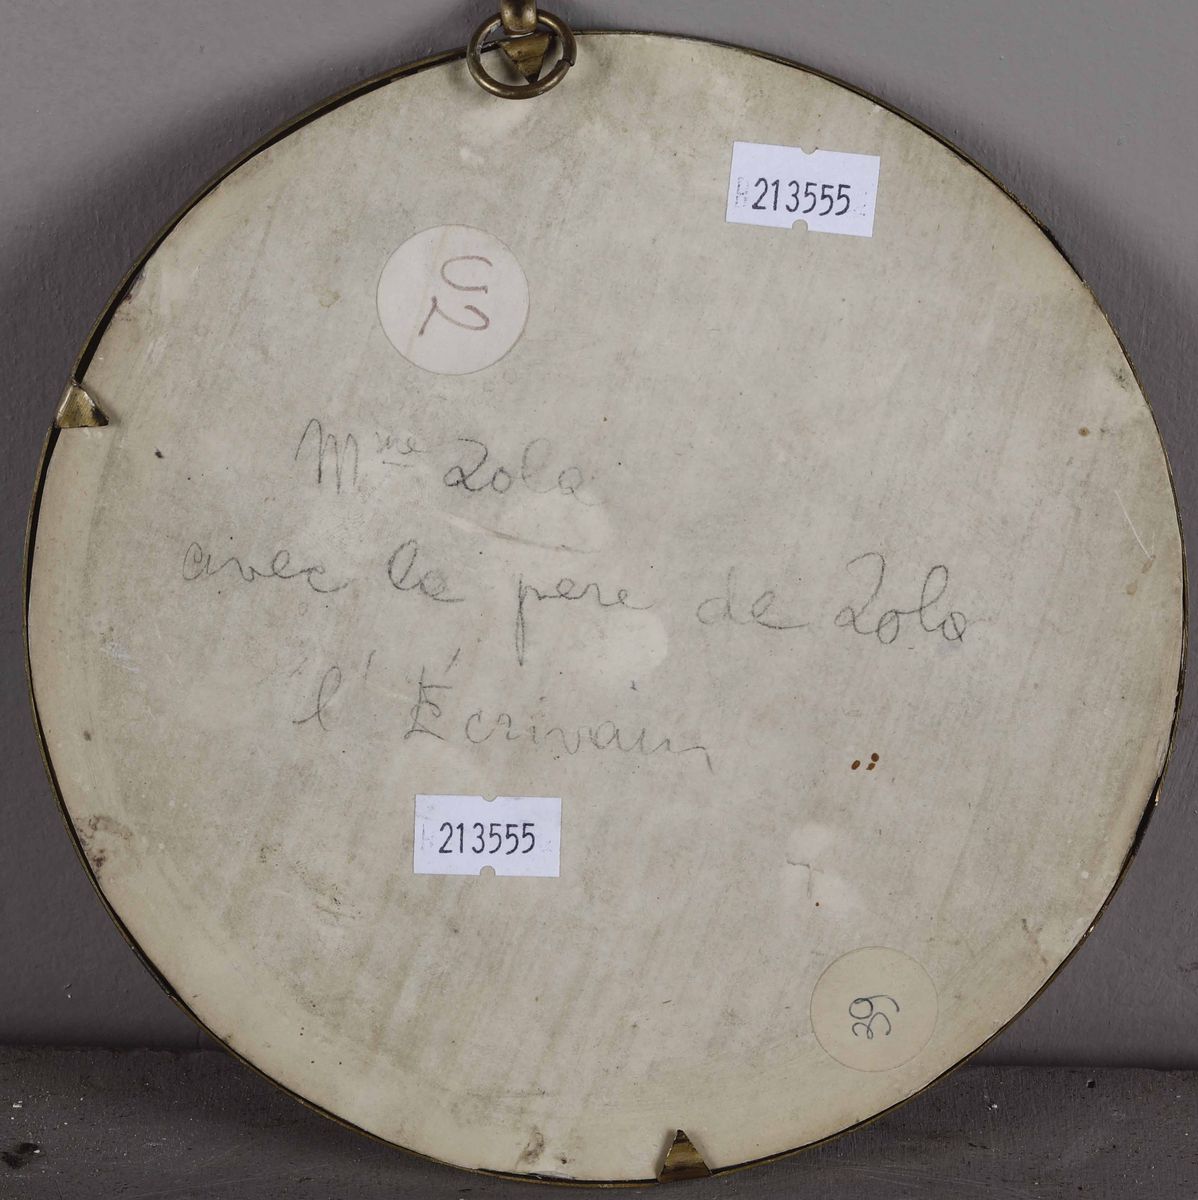 213555
52
Mme Zola
avec le père de Zola
l'Écrivain
213555
39